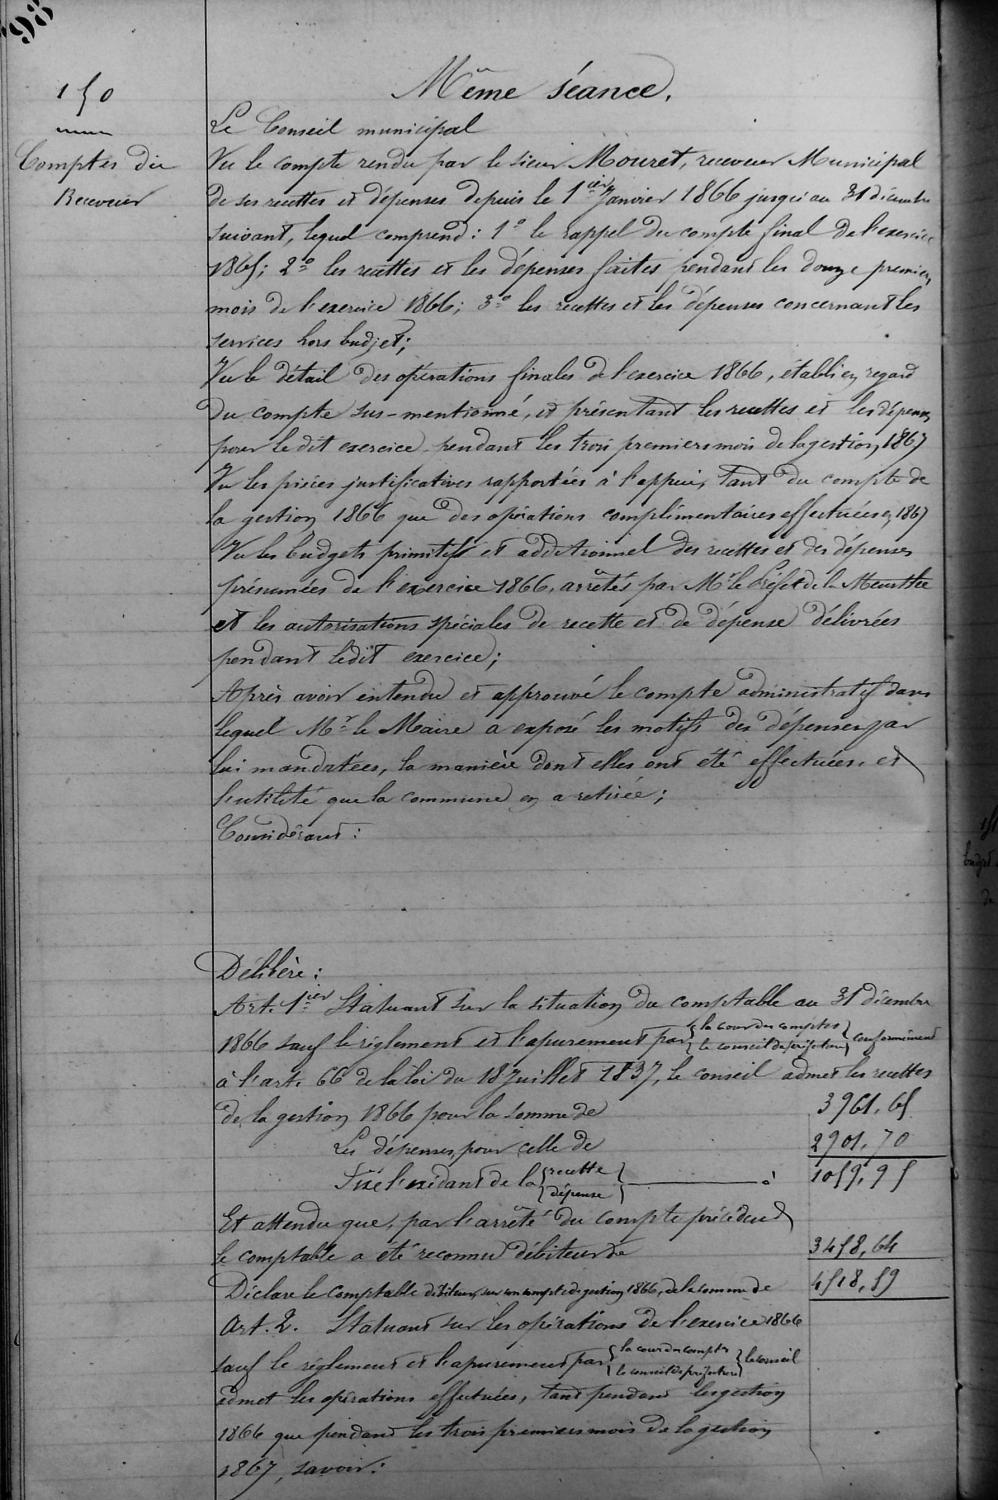 98
150
Comptes du
Receveur
Même séance.
Le Conseil municipal
Vu le compte rendu par le sieur Mouret, receveur Municipal
de ses recettes et dépenses depuis le 1er Janvier 1866 jusqu'au 31 décembre
suivant, lequel comprend : 1° le rappel du compte final de l'exercice
1865; 2° les recettes et les dépenses faites pendant les douze premiers
mois de l'exercice 1866; 3° les recettes et les dépenses concernant les
services hors budget;
Vu le détail des opérations finales de l'exercice 1866, établi en regard
du compte sus-mentionné, et présentant les recettes et les dépenses
pour le dit exercice pendant les trois premiers mois de la gestion 1867
Vu les pièces justificatives rapportées à l'appui, tant du compte de
la gestion 1866 que des opérations complimentaires effectuées en 1867
Vu les budgets primitifs et additionnel des recettes et des dépenses
présumées de l'exercice 1866, arrêtés par Mr le Préfet de la Meurthe
et les autorisations spéciales de recette et de dépense délivrées
pendant ledit exercice;
Après avoir entendu et approuvé le compte administratif dans
lequel Mr le Maire a exposé les motifs des dépenses par
lui mandatées, la manière dont elles ont été effectuées, et
l'utilité que la commune en a retirée;
Considérant :
Délibère :
Art. 1er Statuant sur la situation du comptable au 31 décembre
1866 sauf le règlement et l'apurement par { la cour des comptes / le conseil de préfecture } conformément
à l'art. 66 de la loi du 18 Juillet 1837, le conseil admet les recettes
de la gestion 1866 pour la somme de 3961,65
Les dépenses pour celle de 2901,70
Fixe l'excédant de la { recette / dépense } à 1059,95
Et attendu que, par l'arrêté du compte précédent
le comptable a été reconnu débiteur de 3458,64
Déclare le comptable débiteur, sur son compte de gestion 1866, de la somme de 4518,59
Art. 2. Statuant sur les opérations de l'exercice 1866
sauf le règlement et l'apurement par { la cour des comptes / le conseil de préfecture } le conseil
admet les opérations effectuées, tant pendant la gestion
1866 que pendant les trois premiers mois de la gestion
1867, savoir :